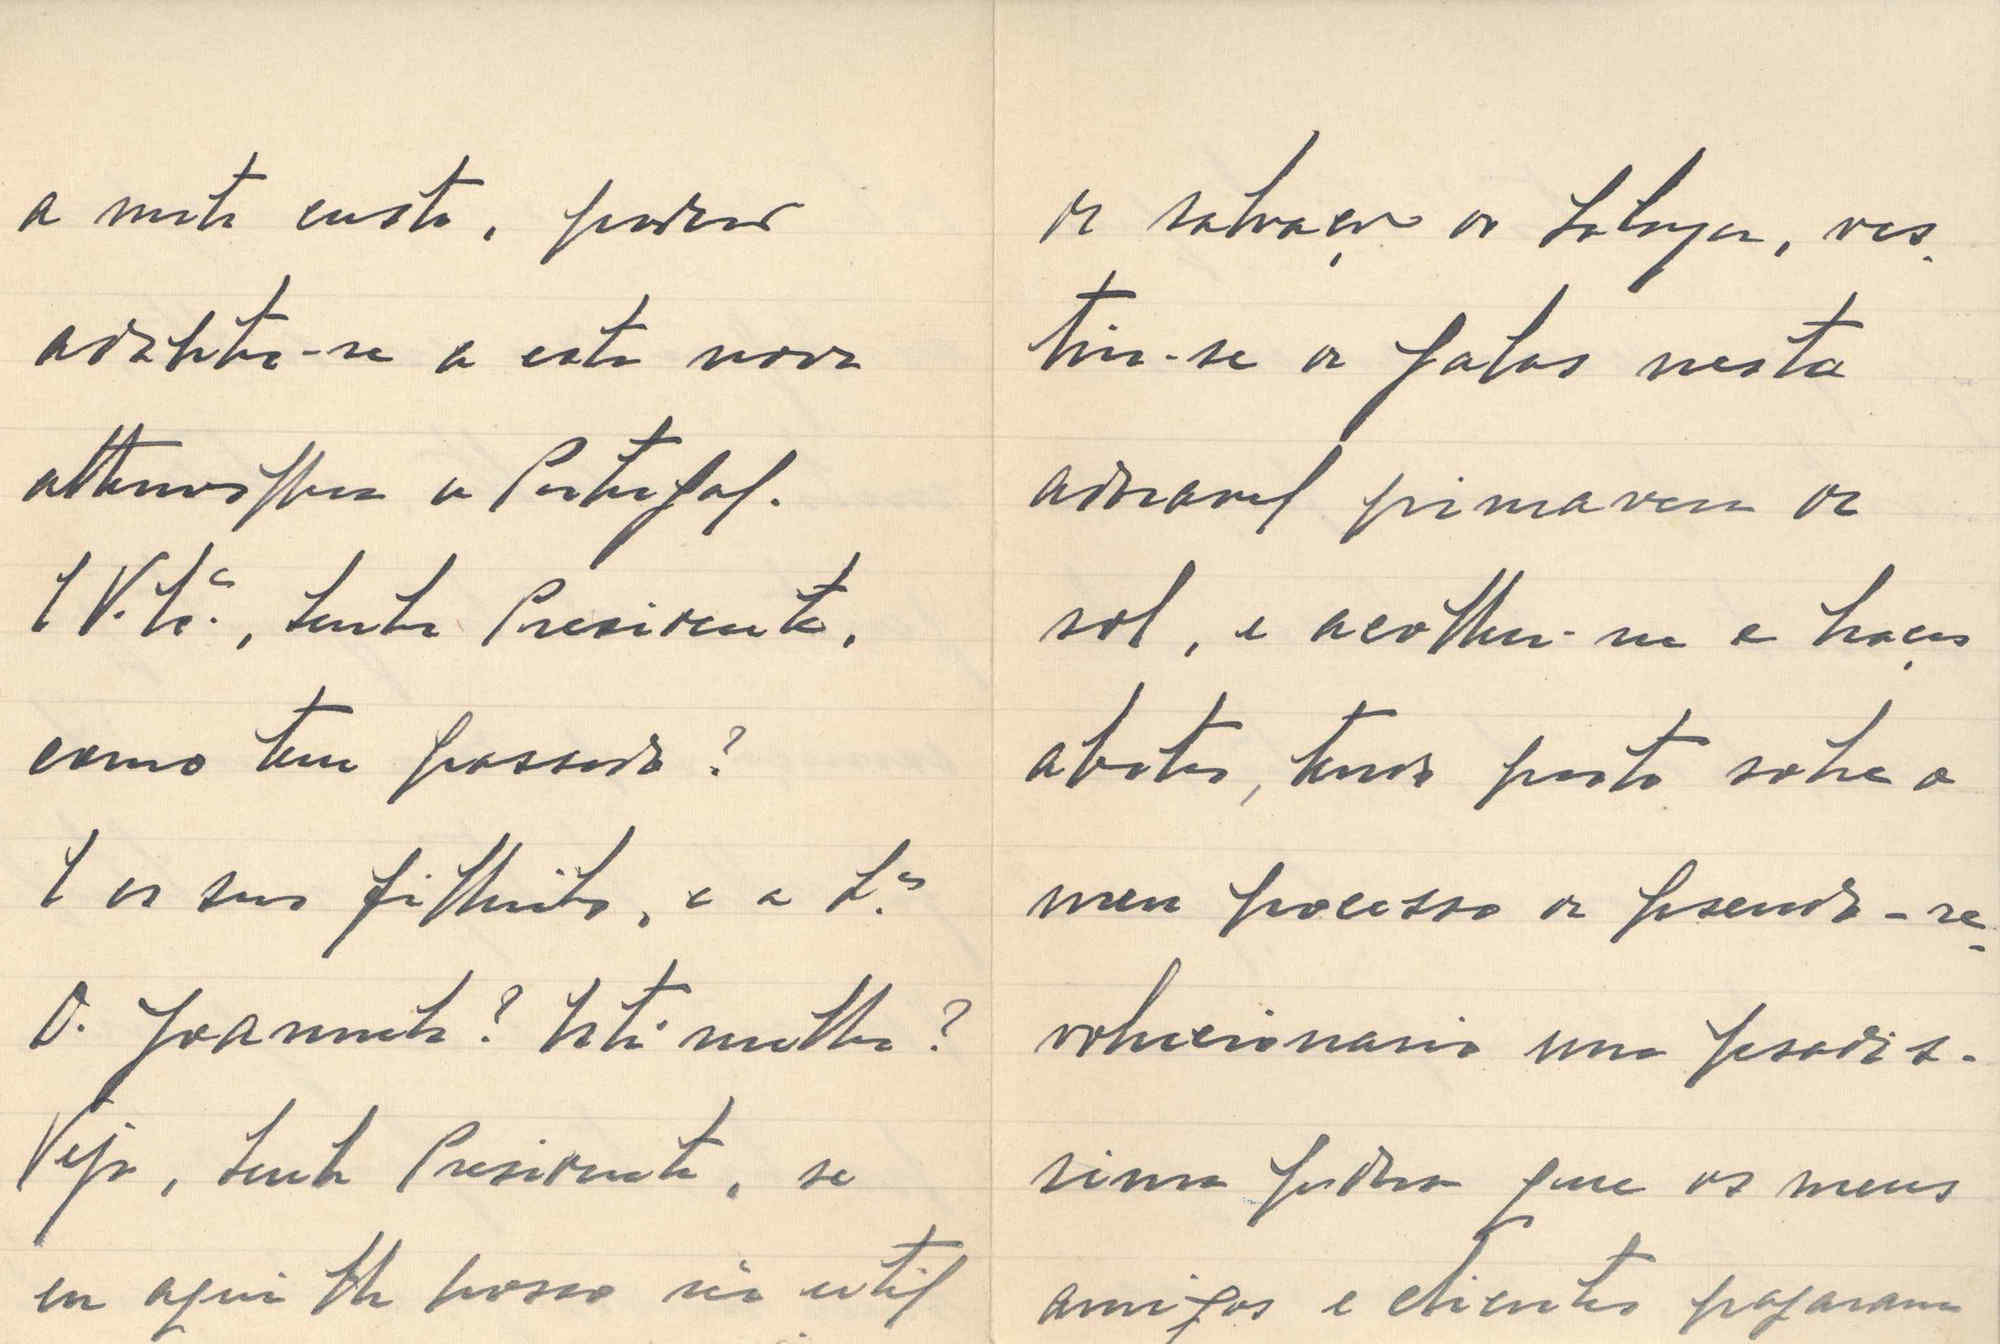 a muito custo, poderá
adaptar-se a esta nova
atthmosphera de Portugal.
E V. Exª., Senhor Presidente,
como tem passado?
E os seus filhinhos, e a Sª
D. Joannita? Está melhor?
Veja, Senhor Presidente, se
eu aqui lhe posso ser util
de salvação de
tiu-se de galas nesta
adoravel primavera de
sol, e acolheu-me a braços
abertos, tendo posto sobre o
meu processo de pseudo-re-
volucionario uma pesadis-
sima pedra que os meus
amigos e clientes pagaram